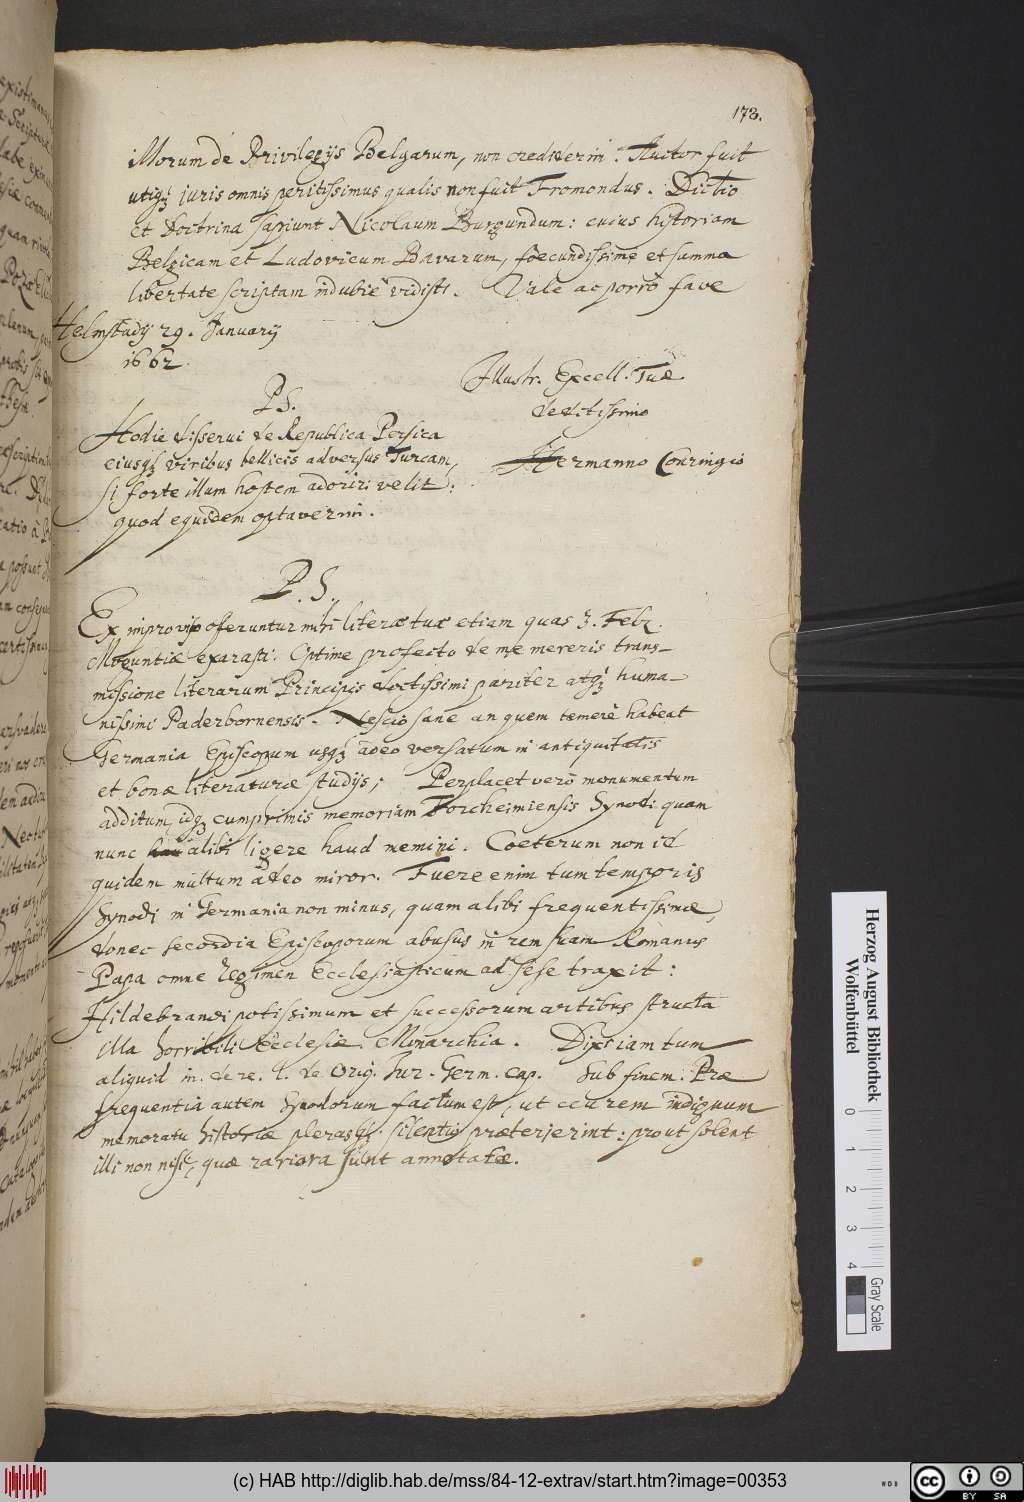 173.
illorum de Privilegijs Belgarum, non crediderim. Auctor fuit
utiqꝫ juris omnis peritissimus qualis non fuit Fromondus. Dictio
et doctrina sapiunt Nicolaum Burgundum: cuius historiam
Belgicam et Ludovicum Bavarum, foecundissime et summa
libertate scriptam indubiè vidisti. Vale ac porrò fave
Helmstadij 29. Januarij
1662.
Illustr. Excell. Tuæ
deditissimo
Hermanno Conringio
P.S.
Hodie disserui de Republica Persica
eiusqꝫ viribus bellicis adversus Turcam,
si forte illum hostem adoriri velit:
quod equidem optaverim.
P.S.
Ex improviso offeruntur mihi literæ tuæ etiam quas 3. Febr.
Moguntiæ exarasti. Optime profecto de me mereris trans-
missione literarum Principis doctissimi pariter atqꝫ huma-
nissimi Paderbornensis. Nescio sane an quem temerè habeat
Germania Episcopum usqꝫ adeo versatum in antiquitatis
et bonæ literaturæ studijs; Perplacet verò monumentum
additum, idqꝫ cumprimis memoriam Forcheimiensis Synodi quam
nunc alibi legere haud memini. Coeterum non id
quidem multum adeo miror. Fuere enim tum temporis
Synodi in Germania non minus, quam alibi frequentissimæ,
donec secordia Episcoporum abusus in rem suam Romanus
Papa omne regimen Ecclesiasticum ad sese traxit:
Hildebrandi potissimum et successorum artibus structa
illa horribili Ecclesiæ Monarchia. Dixi iam tum
aliquid in. de re. l. de Orig. Jur. Germ. cap. sub finem. Præ
frequentia autem Synodorum factum est, ut ceu rem indignum
memoratu historiæ plerasqꝫ silentio præterierint: prout solent
illi non nisi, quæ rariora sunt annotare.
Herzog August Bibliothek
Wolfenbüttel
0 1 2 3 4
Gray Scale
(c) HAB http://diglib.hab.de/mss/84-12-extrav/start.htm?image=00353
CC BY SA